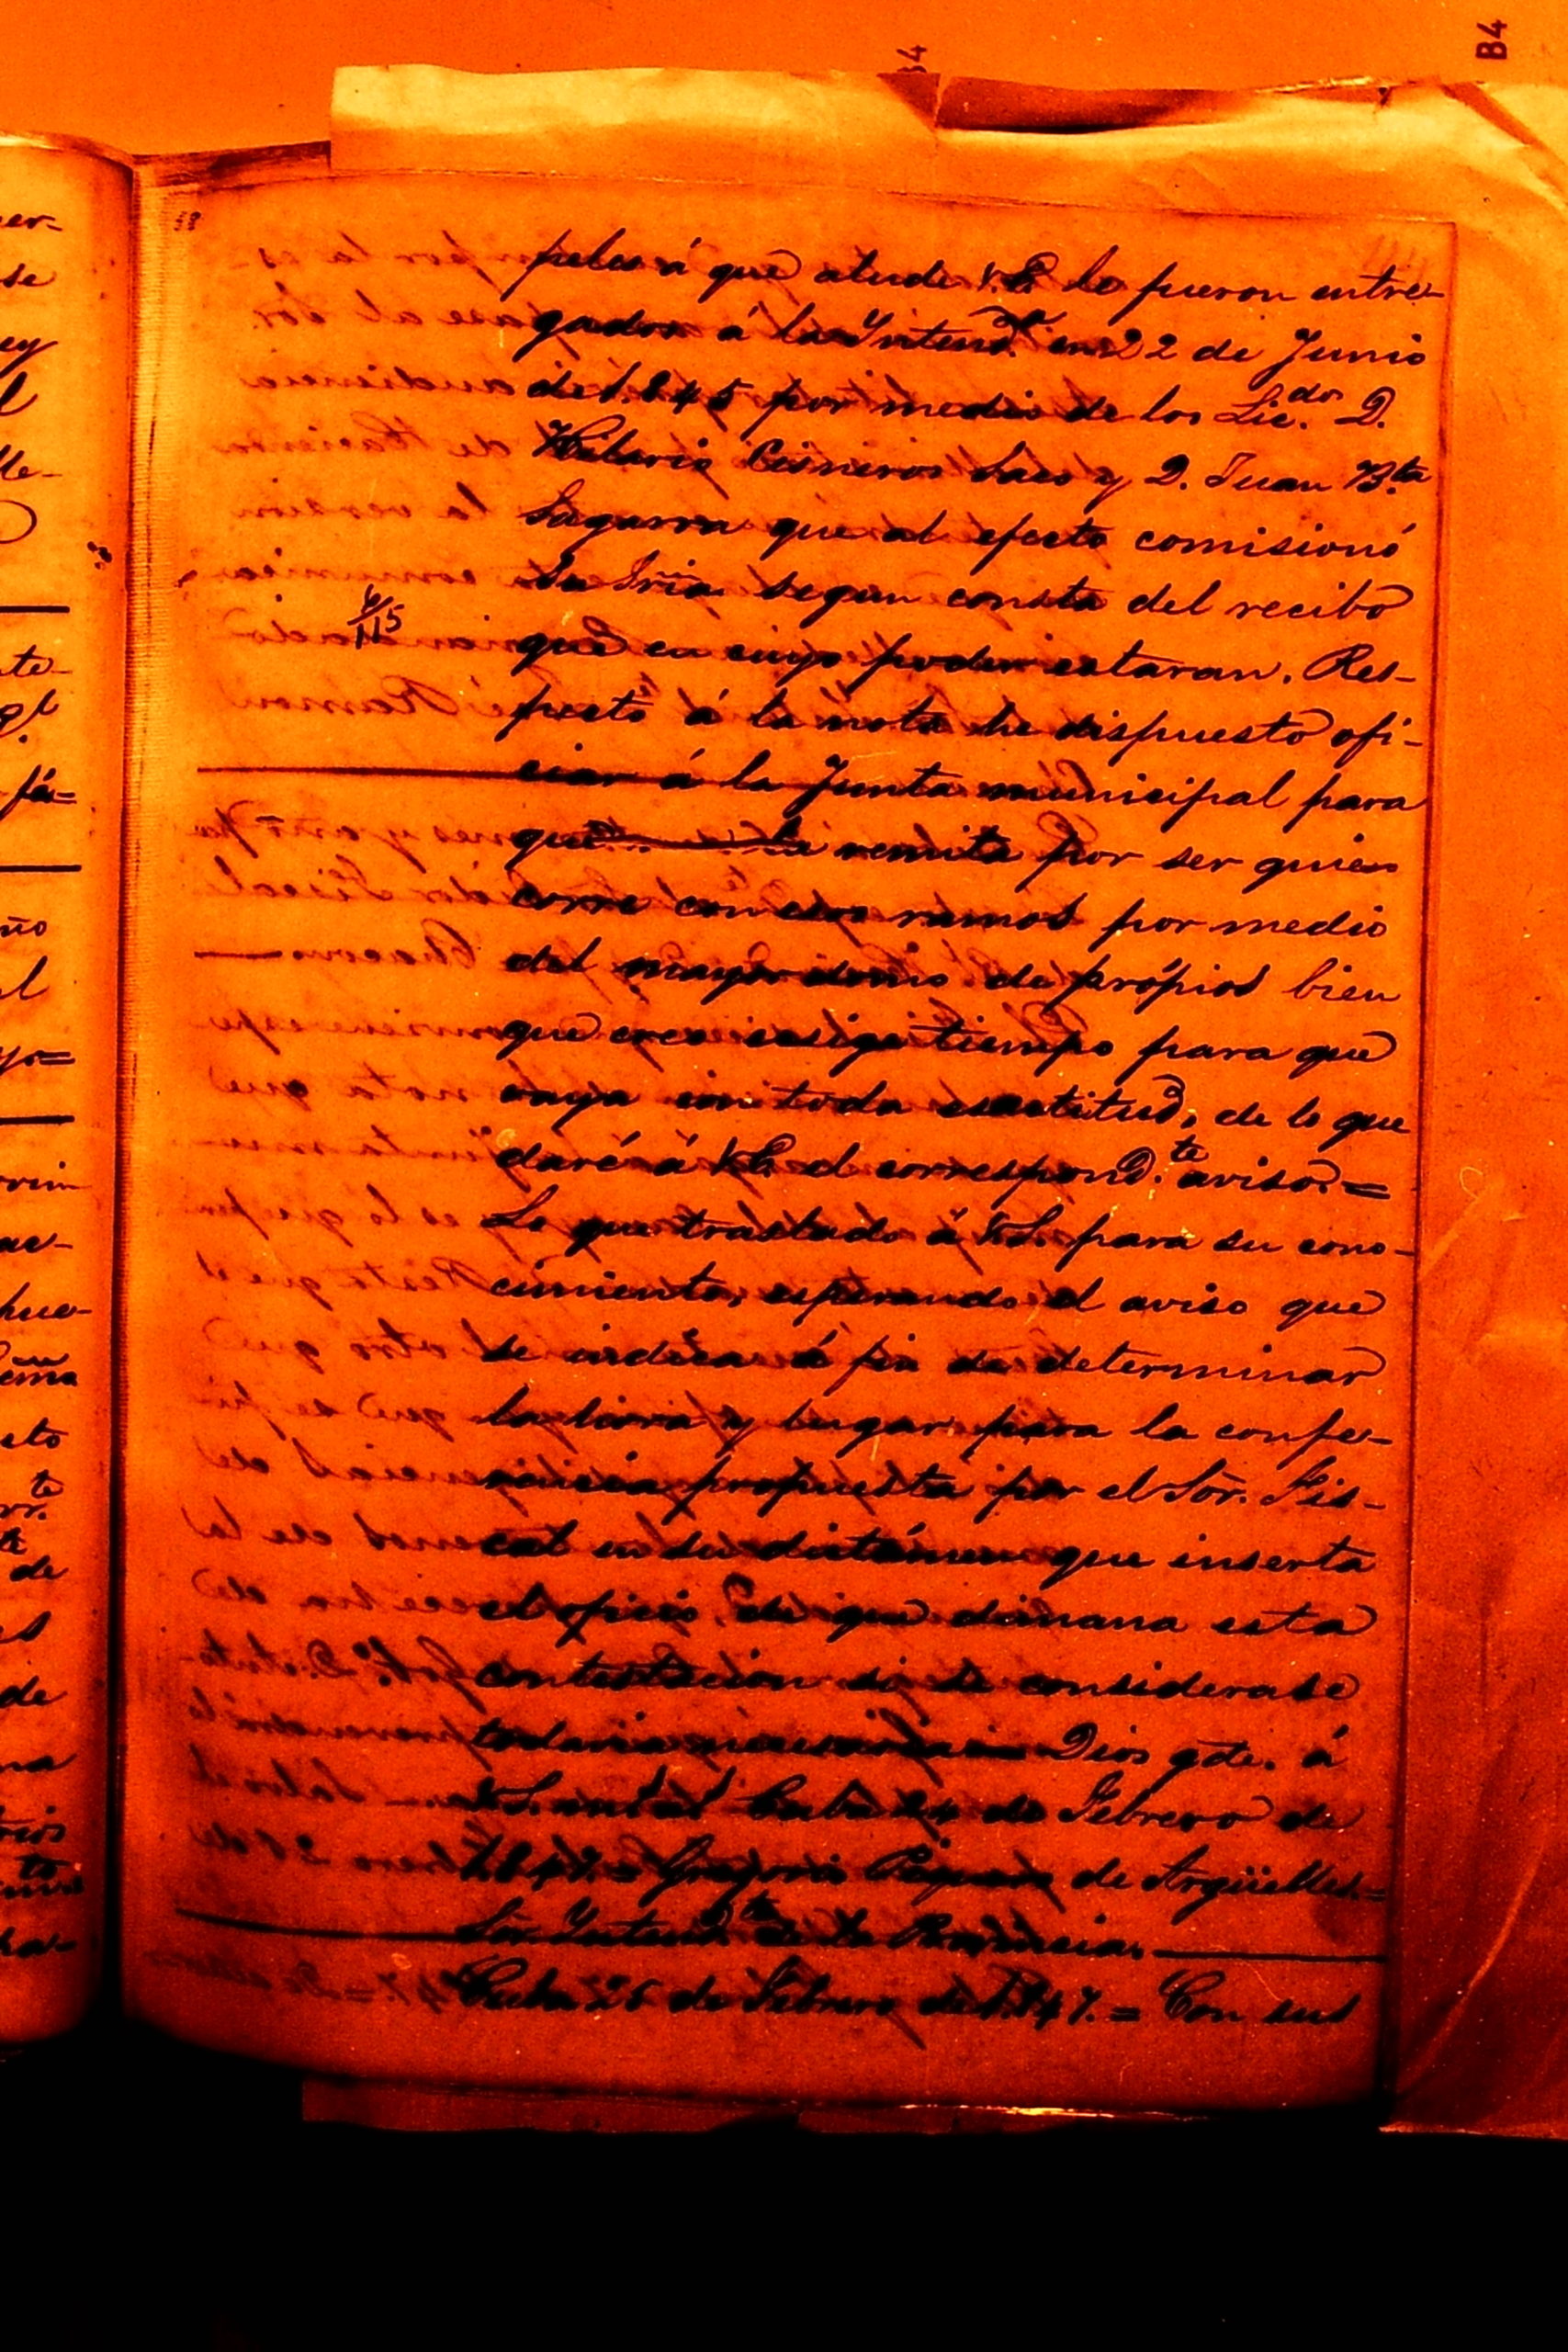 B4
34
58
peles á que alude V.E. le fueron entre-
gados á la Yntend.ª en 22 de Junio
de 1.845 por medio de los Lic.dos D.
Hilario Cisneros Saco y D. Juan B.ta
Sagarra que al efecto comisionó
Su Sria. segun consta del recibo
que en cuyo poder estaran. Res-
6/115
pecto á la nota he dispuesto ofi-
ciar á la Junta municipal para
que la remita por ser quien
corre con esos ramos por medio
del mayordomo de própios bien
que creo ecsige tiempo para que
vaya con toda esactitud, de lo que
daré á V.E. el correspond.te aviso. =
Lo que traslado á V.S. para su cono-
cimiento, esperando el aviso que
se indica á fin de determinar
la hora y lugar para la confe-
rencia propuesta por el Sòr. Fis-
cal en su dictámen que inserta
el oficio, de que dimana esta
contestacion si se considerase
todavia necesaria = Dios gde. á
V.S. m.s a.s Cuba 24 de Febrero de
1.847. = Gregorio de Argüelles. =
Sòr. Yntend.te de la Provincia.
Cuba 26 de Febrero de 1.847. = Con sus